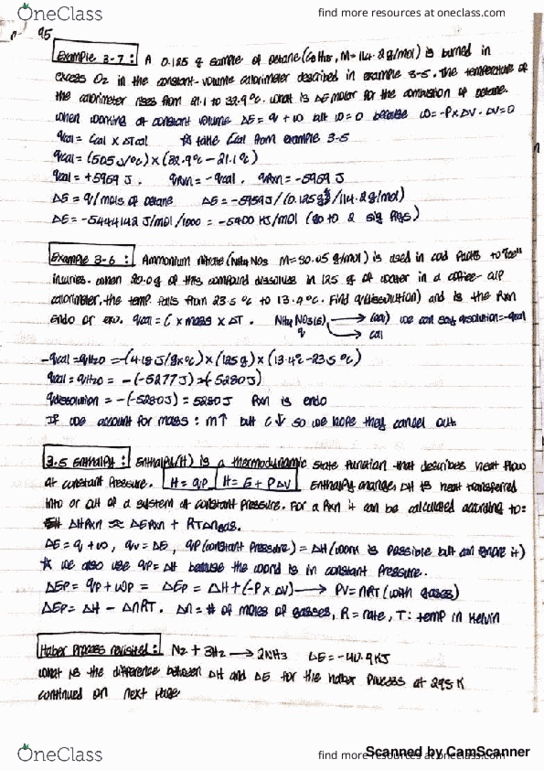 OneClass
find more resources at oneclass.com
95
Example 3-7: A 0.125 g sample of octane (C8H18, M=114.2g/mol) is burned in
excess O2 in the constant-volume calorimeter described in example 3-5. The temperature of
the calorimeter rises from 21.1 to 32.9 °C. What is ΔE molar for the combustion of octane.
When working at constant volume ΔE = q + w but w=0 because w=-P×ΔV. ΔV=0
qcal = Ccal × ΔTcal ☆ take Ccal from example 3-5
qcal = (505 J/°C) × (32.9 °C - 21.1 °C)
qcal = +5959 J qRxn = -qcal. qRxn = -5959 J
ΔE = q/mols of octane ΔE = -5959 J/(0.125 g/114.2 g/mol)
ΔE = -5444142 J/mol/1000 = -5400 KJ/mol (go to 2 sig figs)
Example 3-6: Ammonium nitrate (NH4NO3 M=80.05 g/mol) is used in cold packs to
injuries. When 20.0g of this compound dissolves in 125 g of water in a coffee-cup
calorimeter, the temp. falls from 23.5 °C to 13.4 °C. Find q(dissolution) and is the Rxn
endo or exo. qcal = C × mass × ΔT. NH4NO3(s) (aq) we can say qdissolution = -qcal
q cal
-qcal = qH2O = -(4.18 J/g×°C) × (125g) × (13.4°C - 23.5 °C)
qcal = qH2O = -(-5277 J) = (-5280 J)
qdissolution = -(-5280 J) = 5280 J Rxn is endo
If we account for mass: m↑ but C↓ so we hope they cancel out.
3.5 Enthalpy: Enthalpy (H) is a thermodynamic state function that describes heat flow
at constant pressure. H = qP H = E + PΔV Enthalpy change, ΔH is heat transferred
into or out of a system at constant pressure. For a Rxn it can be calculated according to:
ΔHRxn ≈ ΔERxn + RTΔngas.
ΔE = q + w, qv = ΔE, qP (constant pressure) = ΔH (work is possible but can ignore it)
☆ we also use qP = ΔH because the world is in constant pressure.
ΔEP = qP + wP = ΔEP = ΔH + (-P × ΔV) → PV = nRT (with gases)
ΔEP = ΔH - ΔnRT. Δn = # of moles of gasses, R = rate, T: temp in Kelvin
Haber Process revisited: N2 + 3H2 → 2NH3 ΔE = -40.9 KJ
What is the difference between ΔH and ΔE for the haber process at 298 K
continued on next page
OneClass
find more resources at oneclass.com
Scanned by CamScanner